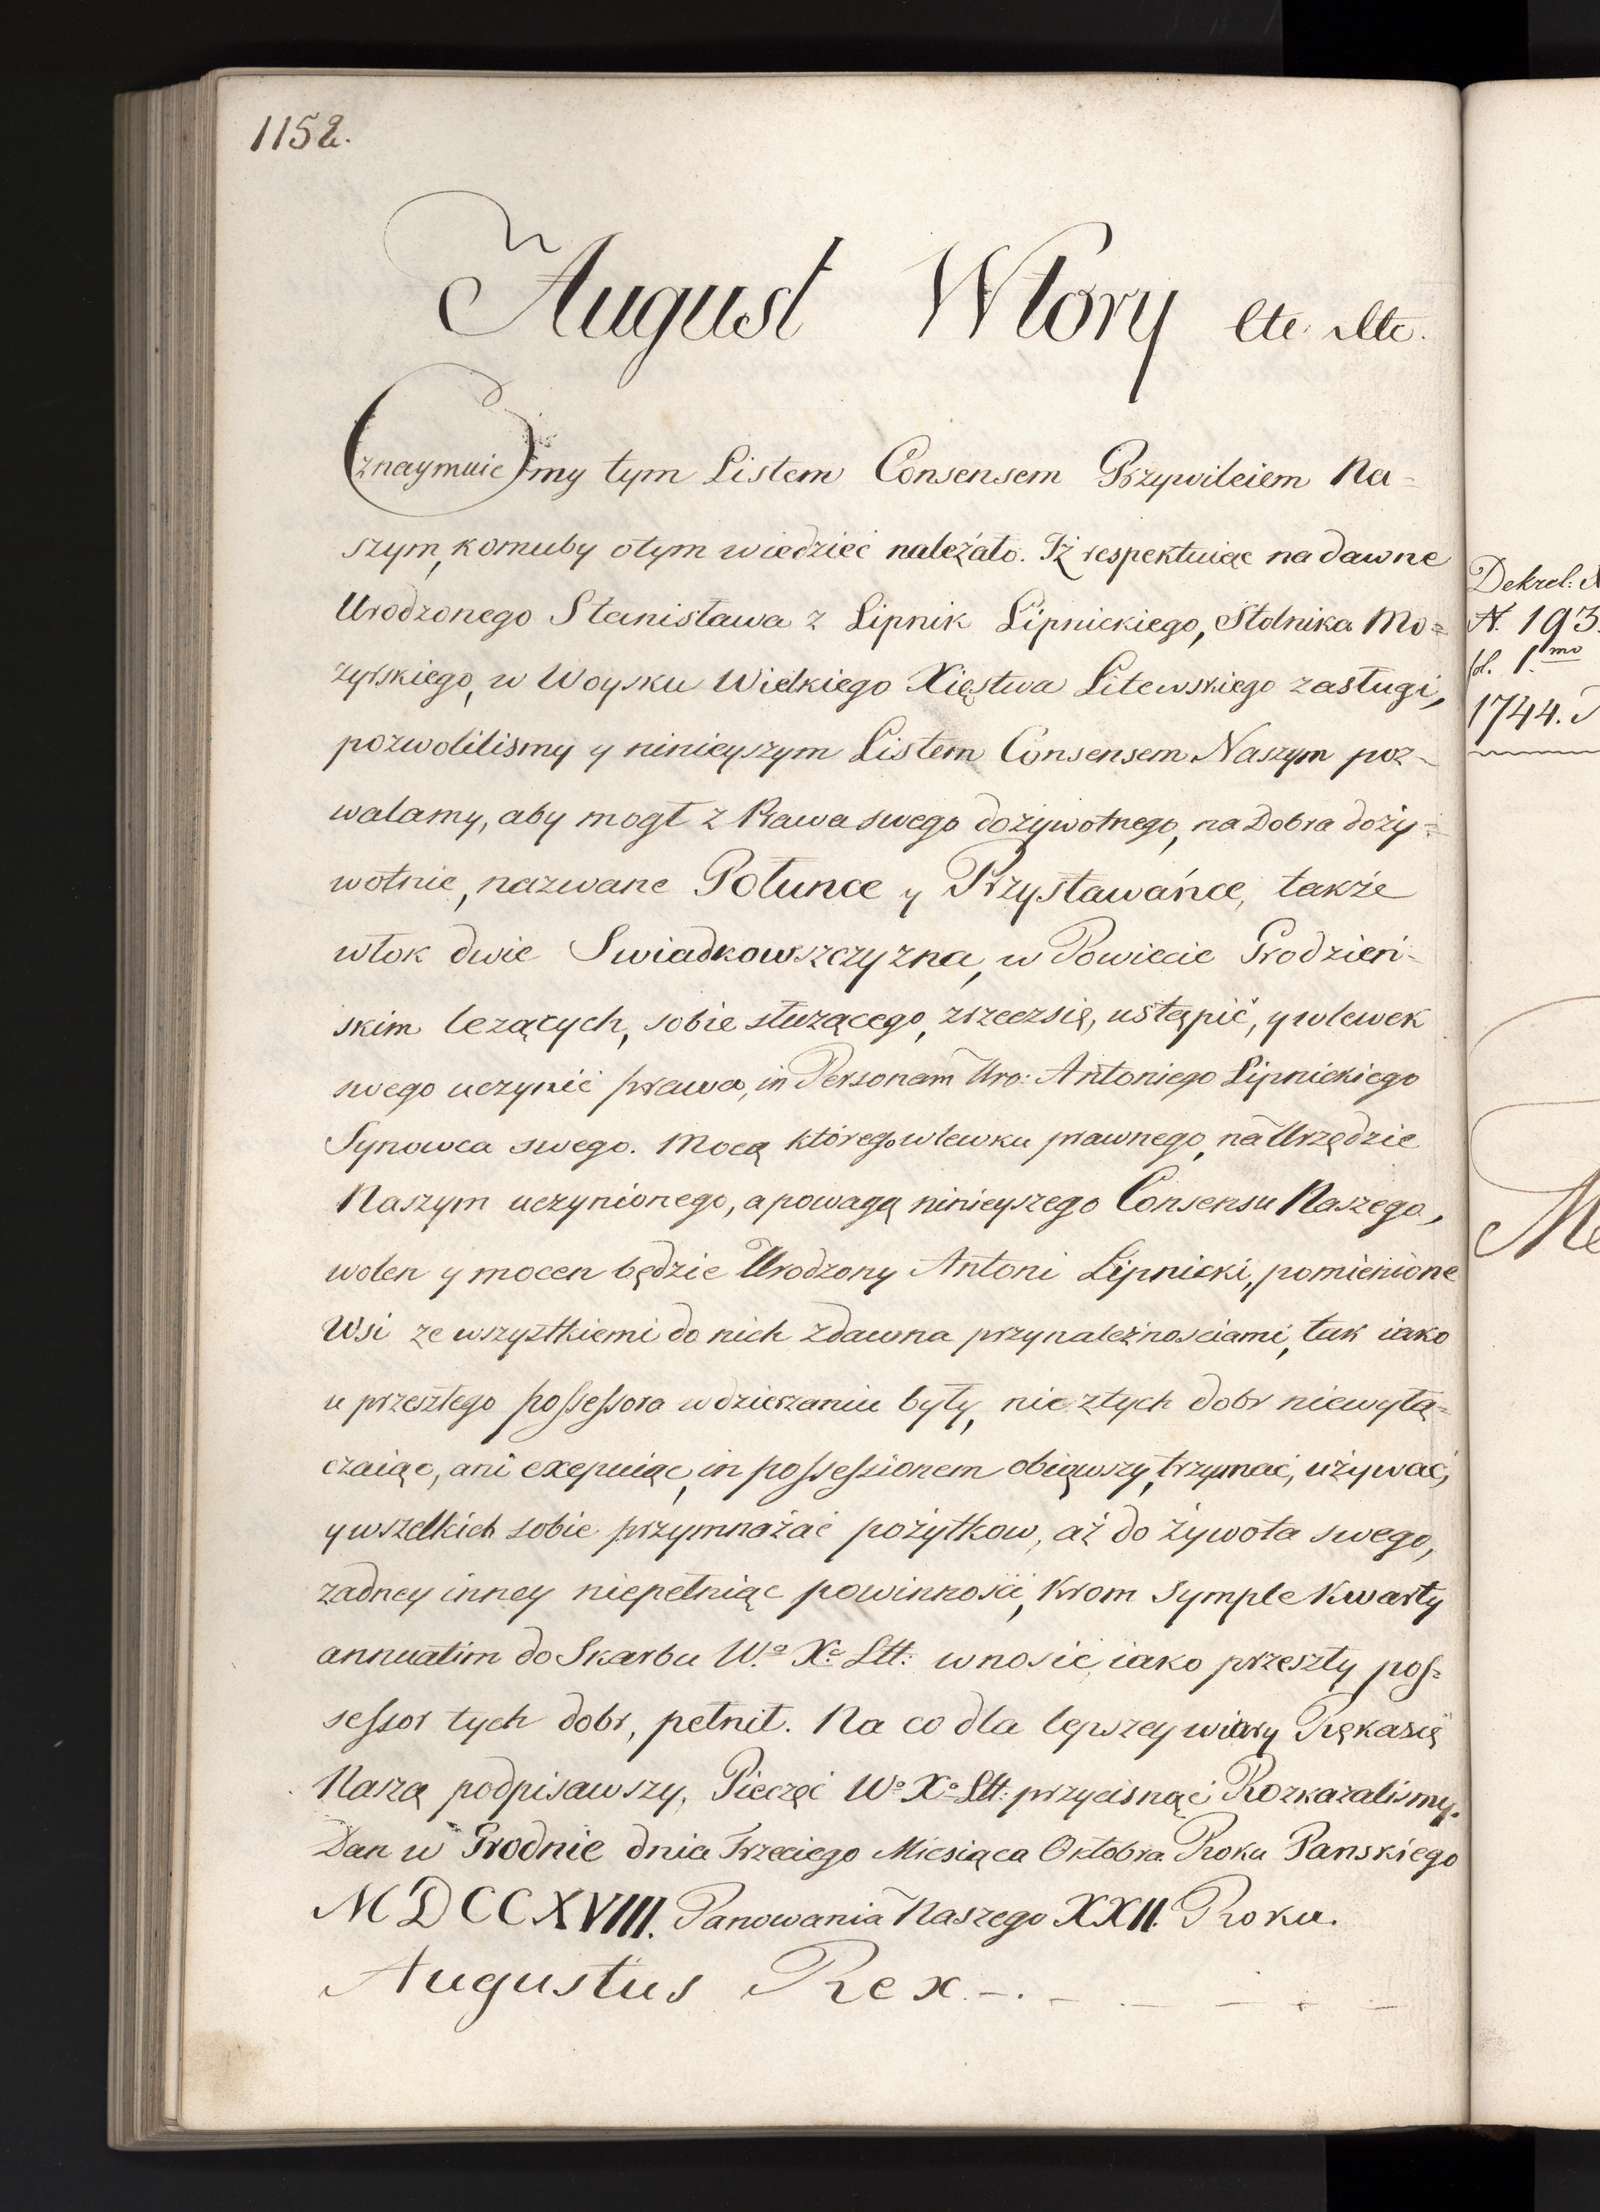 1152.
August Wtóry etc. etc.
Oznaymuiemy tym Listem Consensem Przywileiem Na=
szym, komuby otym wiedzieć należało. Iż respektuiąc na dawne
Urodzonego Stanisława z Lipnik Lipnickiego, Stolnika Mo=
zyrskiego, w Woysku Wielkiego Xięstwa Litewskiego zasługi,
pozwolilismy y ninieyszym Listem Consensem Naszym poz=
walamy, aby mogł z Prawa swego dożywotnego, na Dobra doży=
wotnie, nazwane Połunce y Przystawańce, także
włok dwie Swiadkowszczyzna, w Powiecie Grodzień=
skim leżących, sobie służącego, zrzeczsię, ustąpić, y wlewek
swego uczynić prawa, in Personam Uro: Antoniego Lipnickiego
Synowca swego. Mocą którego wlewku prawnego, na Urzędzie
Naszym uczynionego, a powagą ninieyszego Consensu Naszego,
wolen y mocen będzie Urodzony Antoni Lipnicki, pomienione
Wsi ze wszystkiemi do nich zdawna przynależnosciami, tak iako
u przeszłego possessora w dzierzaniu były, nic ztych dobr niewyłą=
czaiąc, ani excypuiąc, in possessionem obiąwszy, trzymać, używać,
y wszelkich sobie przymnażać pożytkow, aż do żywota swego,
żadney inney niepełniąc powinności, krom symple kwarty
annuatim do Skarbu W.º X.º Litt: wnosić, iako przeszły pos=
sessor tych dobr, pełnił. Na co dla lepszey wiary Rękasię
Naszą podpisawszy, Pieczęć Wº Xº Litt: przycisnąć Rozkazalismy.
Dan w Grodnie dnia Trzeciego Miesiąca Oktobra Roku Panskiego
MDCCXVIII. Panowania Naszego XXII. Roku.
Augustus Rex.
Dekret:
N. 193.
fol. 1.mo
1744.